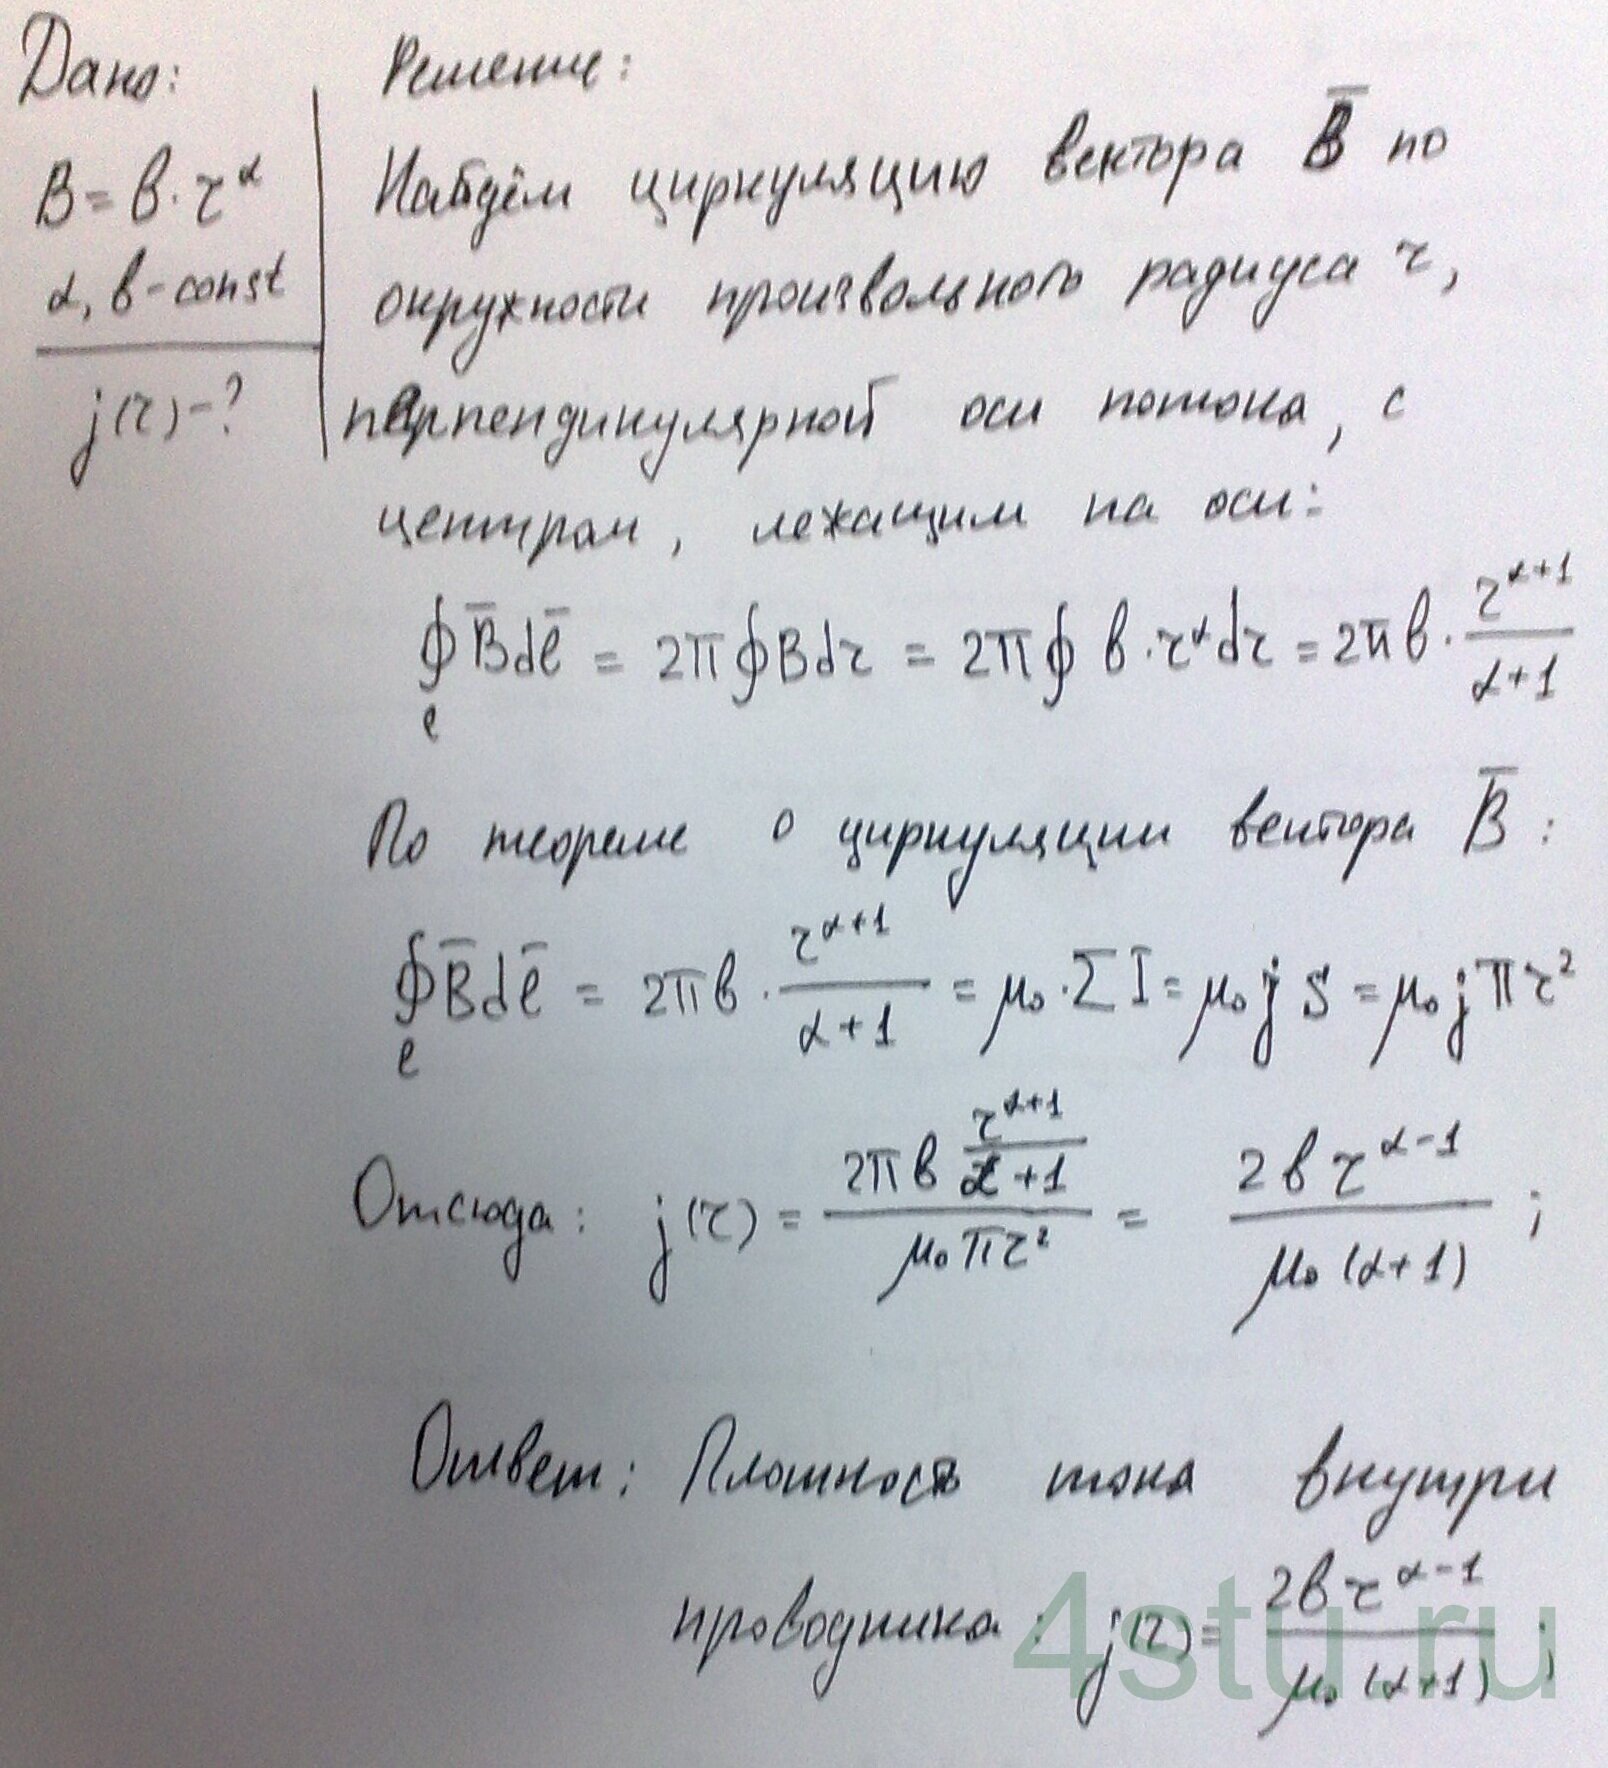 Дано:
B = b · r^α
α, b - const
j(r) - ?
Решение:
Найдём циркуляцию вектора B̅ по
окружности произвольного радиуса r,
перпендикулярной оси потока, с
центром, лежащим на оси:
∮_ℓ B̅dℓ̅ = 2π∮Bdr = 2π∮ b · r^α dr = 2πb · r^(α+1)/(α+1)
По теореме о циркуляции вектора B̅ :
∮_ℓ B̅dℓ̅ = 2πb · r^(α+1)/(α+1) = μ₀ · ΣI = μ₀ j S = μ₀ j π r²
Отсюда: j(r) = (2πb r^(α+1)/(α+1))/(μ₀ π r²) = 2b r^(α-1)/(μ₀(α+1)) ;
Ответ: Плотность тока внутри
проводника: j(r) = 2b r^(α-1)/(μ₀(α+1)) ;
4stu.ru